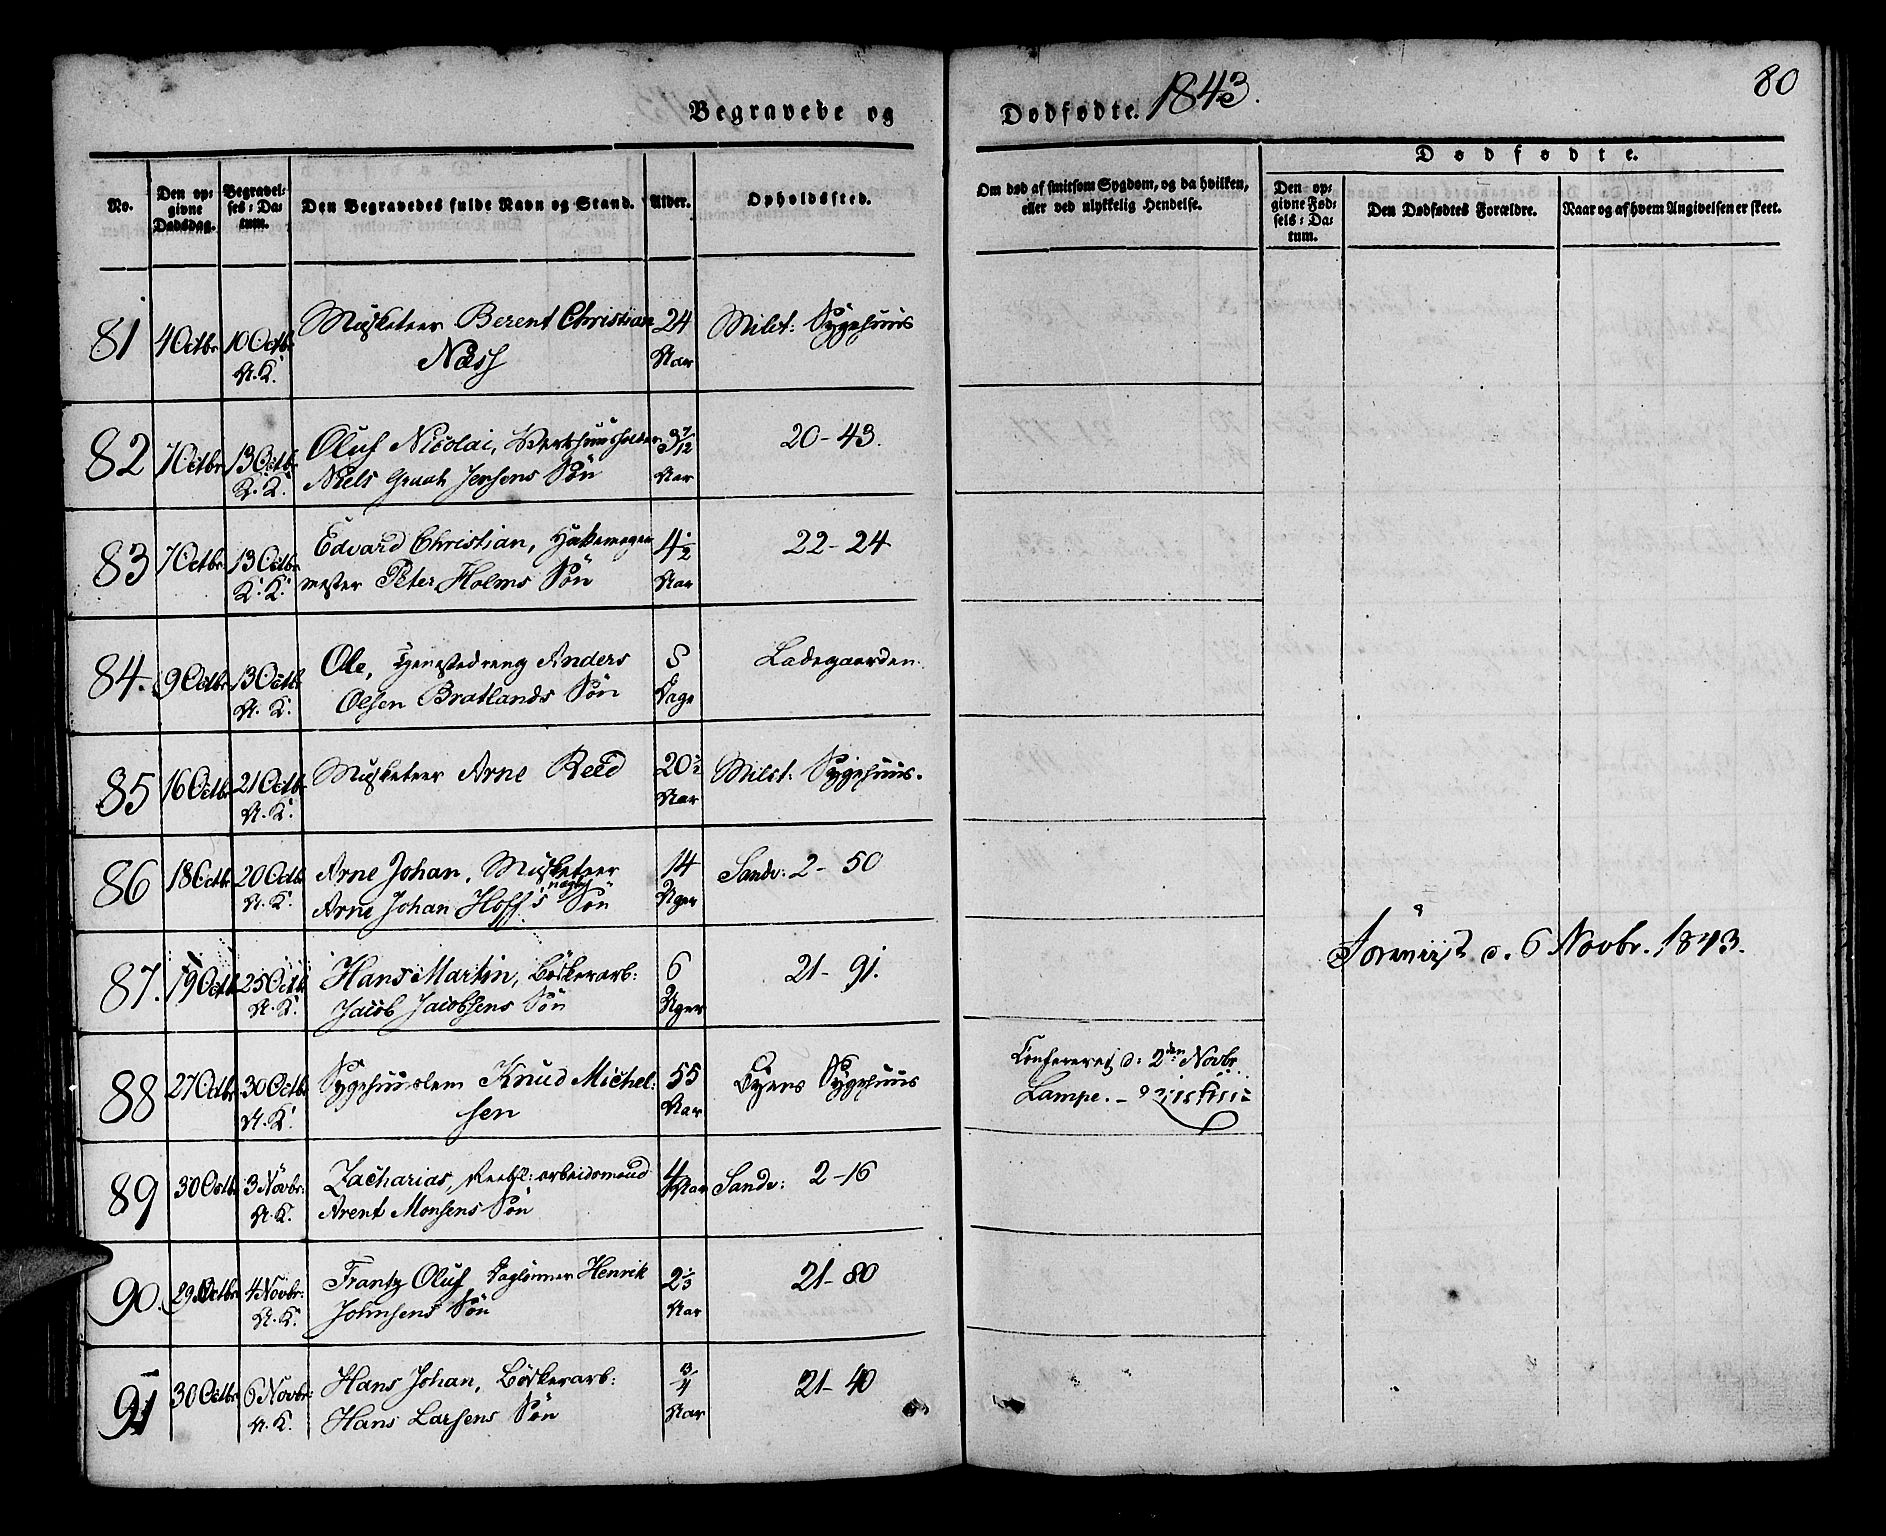 Begravede og Dødfødte. 1843. 80
No. Den opgivne Dødsdag. Begravelses-Datum. Den Begravedes fulde Navn og Stand. Alder. Opholdssted.
Om død af smitsom Sygdom, og da hvilken, eller ved ulykkelig Hendelse.
Dødfødte.
Den opgivne Fødsels-Datum. Den Dødfødtes Forældre. Naar og af hvem Angivelsen er skeet.
81 4 Octbr 10 Octbr Musketeer Berent Christian 24 Milit: Sygehuus
A. K. Næss Aar
82 7 Octbr 13 Octbr Oluf Nicolai, Værtshuusholder 3 7/12 20-43.
K. K. Niels Jensens Søn Aar
83 7 Octbr 13 Octbr Edvard Christian, 4 1/2 22-24
K. K. mester Peter Holms Søn Aar
84. 9 Octbr 13 Octbr Ole, Tjenestedreng Anders 5 Ladegaarden.
A. K. Olsen Bratlands Søn Dage
85 16 Octbr 21 Octbr Musketeer Arne Reed 20 1/2 Milit: Sygehuus.
A. K. Aar
86 18 Octbr 20 Octbr Arne Johan, Musketeer 14 Sandv: 2-50
A. K. Arne Johan Hoff's uægte Søn Uger
87. 19 Octbr 25 Octbr Hans Martin, Bödkerarb: 6 21-91.
A. K. Jacob Jacobsens Søn Uger
88 27 Octbr 30 Octbr Sygehuuslem Knud Michel- 55 Byens Sygehuus
A. K. sen Aar
Confereret d: 2den Novbr.
Lampe.
89 30 Octbr 3 Novbr: Zacharias, Reebsl: arbeidsmand 4 Aar Sandv: 2-16
A. K. Arent Monsens Søn
90. 29 Octbr 4 Novbr: Frantz Oluf, Dagleiner Henrik 2 1/3 21-80
A. K. Johnsens Søn Aar
91 30 Octbr 6 Novbr: Hans Johan, Bödkerarb: 3/4 21-40
A. K. Hans Larsens Søn Aar
Foreviist d. 6 Novbr. 1843.